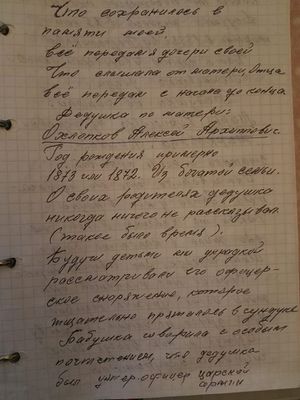 Что сохранилось в
памяти моей
всё передам дочери своей
Что слышала от матери, отца
всё передам с начала до конца
Дедушка по матери:
Охлопков Алексей Архипович.
Год рождения примерно
1873 или 1872. Из богатой семьи.
О своих родителях дедушка
никогда ничего не рассказывал
(такое было время).
Будучи детьми мы украдкой
рассматривали его офицер-
ское снаряжение, которое
тщательно пряталось в сундуке
Бабушка говорила с особым
почтением, что дедушка
был унтер.офицер царской
армии